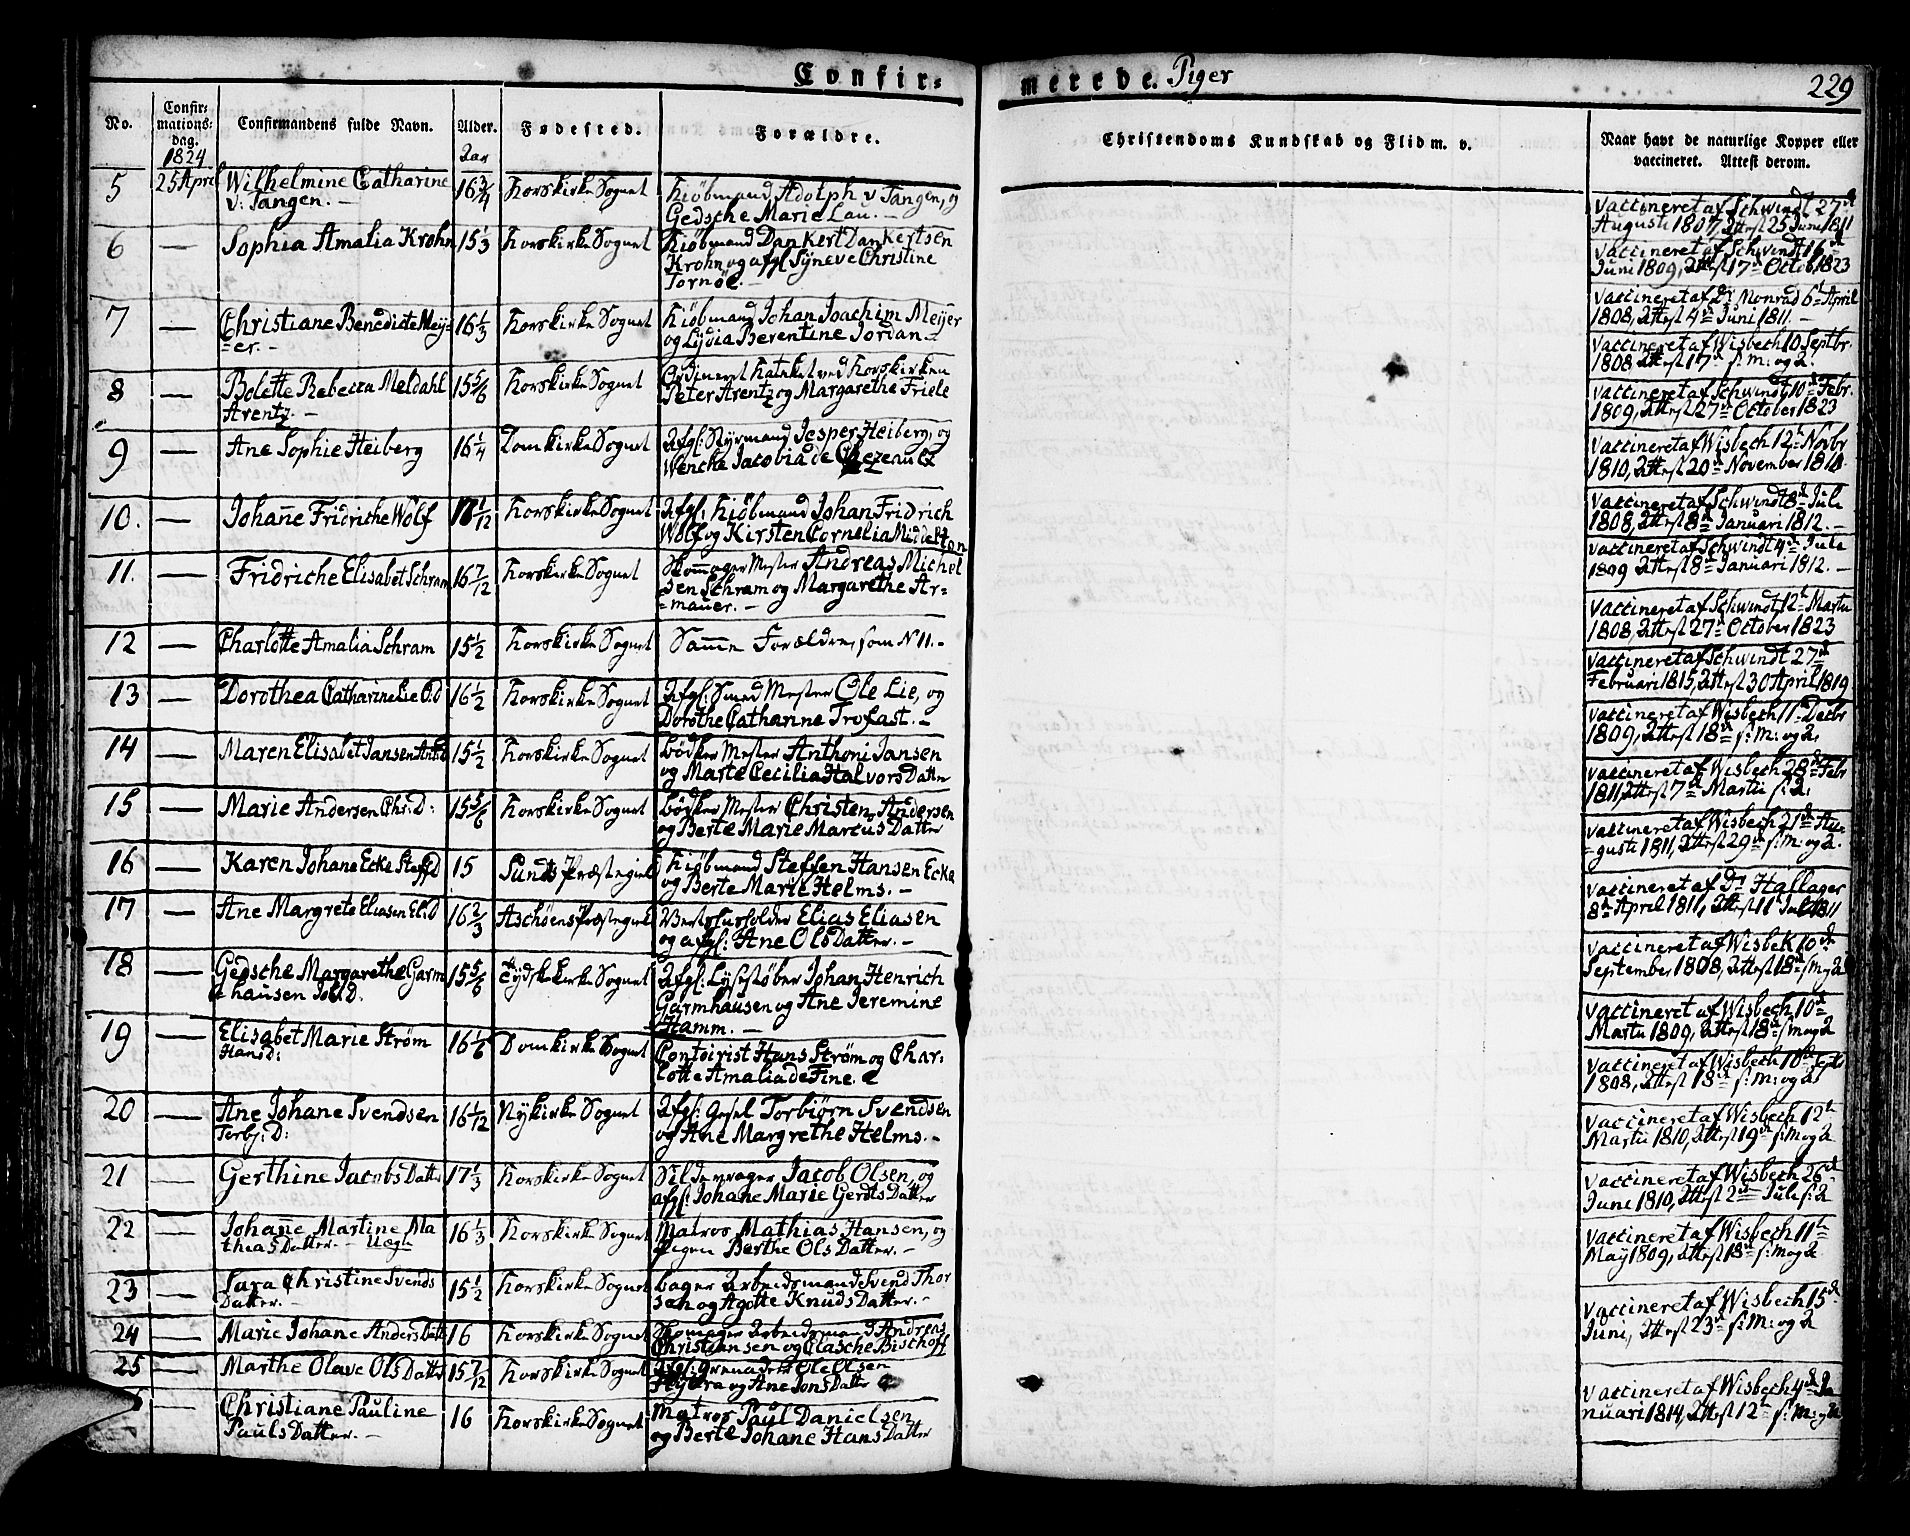 Confir-
merede. Piger
229
No.
Confir-
mations-
dag.
1824
Confirmandens fulde Navn.
Alder.
Aar
Fødested.
Forældre.
Christendoms Kundskab og Flid m. v.
Naar havt de naturlige Kopper eller
vaccineret. Attest derom.
5 25 April Wilhelmine Catharine 16 3/4 Korskirke Sognet Kiøbmand Adolph v Tangen, og
v: Tangen. – Gedsche Marie Lau. –
Vaccineret af Schwindt 27de
Augusti 1807, Attest 25 Juni 1811
6 — Sophia Amalia Krohn 15 1/3 Korskirke Sognet Kiøbmand Dankert Dankertsen
Krohn og afgl Syneve Christine
Tornöe. –
Vaccineret af Schwindt 16de
Juni 1809, Attest 17de Octob 1823
7 — Christiane Benedicte Mey= 16 1/3 Korskirke Sognet Kiøbmand Johan Joachim Meijer
=er. – og Lydia Berentine Jordan –
Vaccineret af Dr Monrad 6t April
1808, Attest 4de Juni 1811. –
8 — Bolette Rebecca Meldahl 15 5/6 Korskirke Sognet Ordineret Kateket ved Korskirken
Arentz. – Peter Arentz og Margarethe Friele
Vaccineret af Wisbech 10 Septbr.
1808 Attest 17de s: M: og A
9 — Ane Sophie Heiberg 16 1/4 Domkirke Sognet Afgl: Styrmand Jesper Heiberg, og
Wencke Jacobia de Chezeaulx
Vaccineret af Schwindt 10de Febr.
1809, Attest 27de October 1823
10. — Johañe Fridriche Wolf 1/12 Korskirke Sognet Afgl: Kiøbmand Johan Fridrich
Wolf og Kirsten Cornelia Middelton
Vaccineret af Wisbech 12te Novbr
1810, Attest 20de November 1810
11. — Fridriche Elisabet Schram 16 7/12 Korskirke Sognet Skomager Mester Andreas Michel
sen Schram og Margarethe Ar=
=mauer. –
Vaccineret af Schwindt 8de Jule
1808, Attest 8de Januari 1812. –
12 — Charlotte Amalia Schram 15 1/2 Korskirke Sognet Samme Forældre, som N 11. –
Vaccineret af Schwindt 4de Jule
1809 Attest 8de Januari 1812. –
13 — Dorothea Catharine Lie O:D 16 1/2 Korskirke Sognet Afgl: Smed Mester Ole Lie, og
Dorothe Catharine Trofast. –
Vaccineret af Schwindt 12te Martii
1808, Attest 27de October 1823
14 — Maren Elisabet Jansen Anth:D 15 1/2 Korskirke Sognet Bødker Mester Anthoni Jansen
og Marte Cecilia Halvors Datter
Vaccineret af Schwindt 27de
Februari 1815, Attest 30 April 1819
15 — Marie Andersen Chs: D: 15 5/6 Korskirke Sognet Bødker Mester Christen Andersen
og Berte Marie Marcus Datter
Vaccineret af Wisbech 11te Decbr
1809, Attest 18de s: M: og A.
16 — Karen Johane Ecke Steff D 15 Sunds Præstegield Kiøbmand Steffen Hansen Ecke
og Berte Marie Helms. –
Vaccineret af Wisbech 28de Febr
1811, Attest 7de Martii s: A:
17 — Ane Margrete Eliasen El:D 16 2/3 Aschöens Præstegield Vertshusholder Elias Eliasen
og afgl: Ane Ols Datter. –
Vaccineret af Wisbech 21de Au=
=gusti 1811, Attest 29de s: M: og A.
18 — Gedsche Margarethe Garm 15 5/6 Tydskekirke Sognet Afgl: Lysestøber Johan Henrich
hausen Joh:D. Garmhausen og Ane Jeremine
Hamm. –
Vaccineret af Dr Hallager
8de April 1811, Attest 11 Jul 1811
19 — Elisabet Marie Strøm 16 1/6 Domkirke Sognet Contoirist Hans Strøm og Char=
Hansd: lotte Amalia de Fine.
Vaccineret af Wisbek 10de
September 1808, Attest 18de s: M og A
20 — Ane Johane Svendsen 16 1/12 Nykirke Sognet Afgl: Gesel Torbiørn Svendsen
Torbj: D: og Ane Margrethe Helms. –
Vaccineret af Wisbech 10de
Martii 1809, Attest 18de s: M og A
21 — Gerthine Jacobs Datter 17 1/3 Korskirke Sognet Sildevrager Jacob Olsen, og
afgl: Johane Marie Gerdts Datter
Vaccineret af Wisbech 10de Febr
1808, Attest 18de s: M: og A
22 — Johañe Martine Ma 16 1/3 Korskirke Sognet Matros Mathias Hansen, og
thias Datter. – Uegte Pigen Berthe Ols Datter. –
Vaccineret af Wisbech 12te
Martii 1810, Attest 19de s: M og A
23 — Sara Christine Svends 15 1/2 Korskirke Sognet Bager Arbeidsmand Svend Thor
Datter. – sen og Agotte Knuds Datter. –
Vaccineret af Wisbech 26de
Juni 1810, Attest 2de Jule s: A
24 — Marie Johane Anders Dattr 16 Korskirke Sognet Skomager Arbeidsmand Andreas
Christiansen og Elasche Bischoff
Vaccineret af Wisbech 11te
May 1809, Attest 18de s: M og A
25 — Marthe Olave Ols Datter 15 7/12 Korskirke Sognet Afgl: Grenader Ole Olsen
Hydra og Ane Jons Datter
Vaccineret af Wisbech 15de
Juni, Attest 23de s: M: og A
6 — Christiane Pauline 16 Korskirke Sognet Matros Paul Danielsen
Pauls Datter. – og Berte Johane Hans Datter
Vaccineret af Wisbech 4de Ja
nuari 1814, Attest 12te s: M: og A